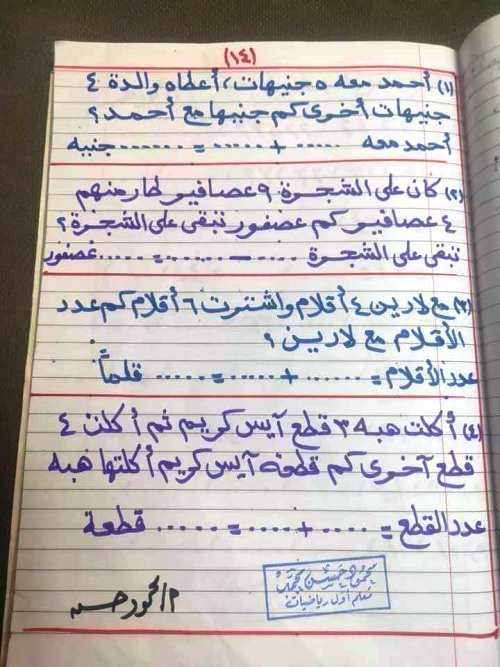 (١٤)
(١) أحمد معه ٥ جنيهات، أعطاه والدة ٤
جنيهات أخرى كم جنيها مع أحمد؟
أحمد معه ...... + ...... = ...... جنيه
(٢) كان على الشجرة ٩ عصافير طار منهم
٤ عصافير كم عصفور تبقى على الشجرة؟
تبقى على الشجرة ...... − ...... = ...... عصفور
(٣) مع لارين ٤ أقلام واشترت ٦ أقلام كم عدد
الأقلام مع لارين؟
عدد الأقلام = ...... + ...... = ...... قلماً
(٤) أكلت هبه ٣ قطع آيس كريم ثم أكلت ٤
قطع آخرى كم قطعه آيس كريم أكلتها هبه
عدد القطع = ...... + ...... = ...... قطعة
محمود حسن محمد
معلم أول رياضيات
أ/محمود حسن